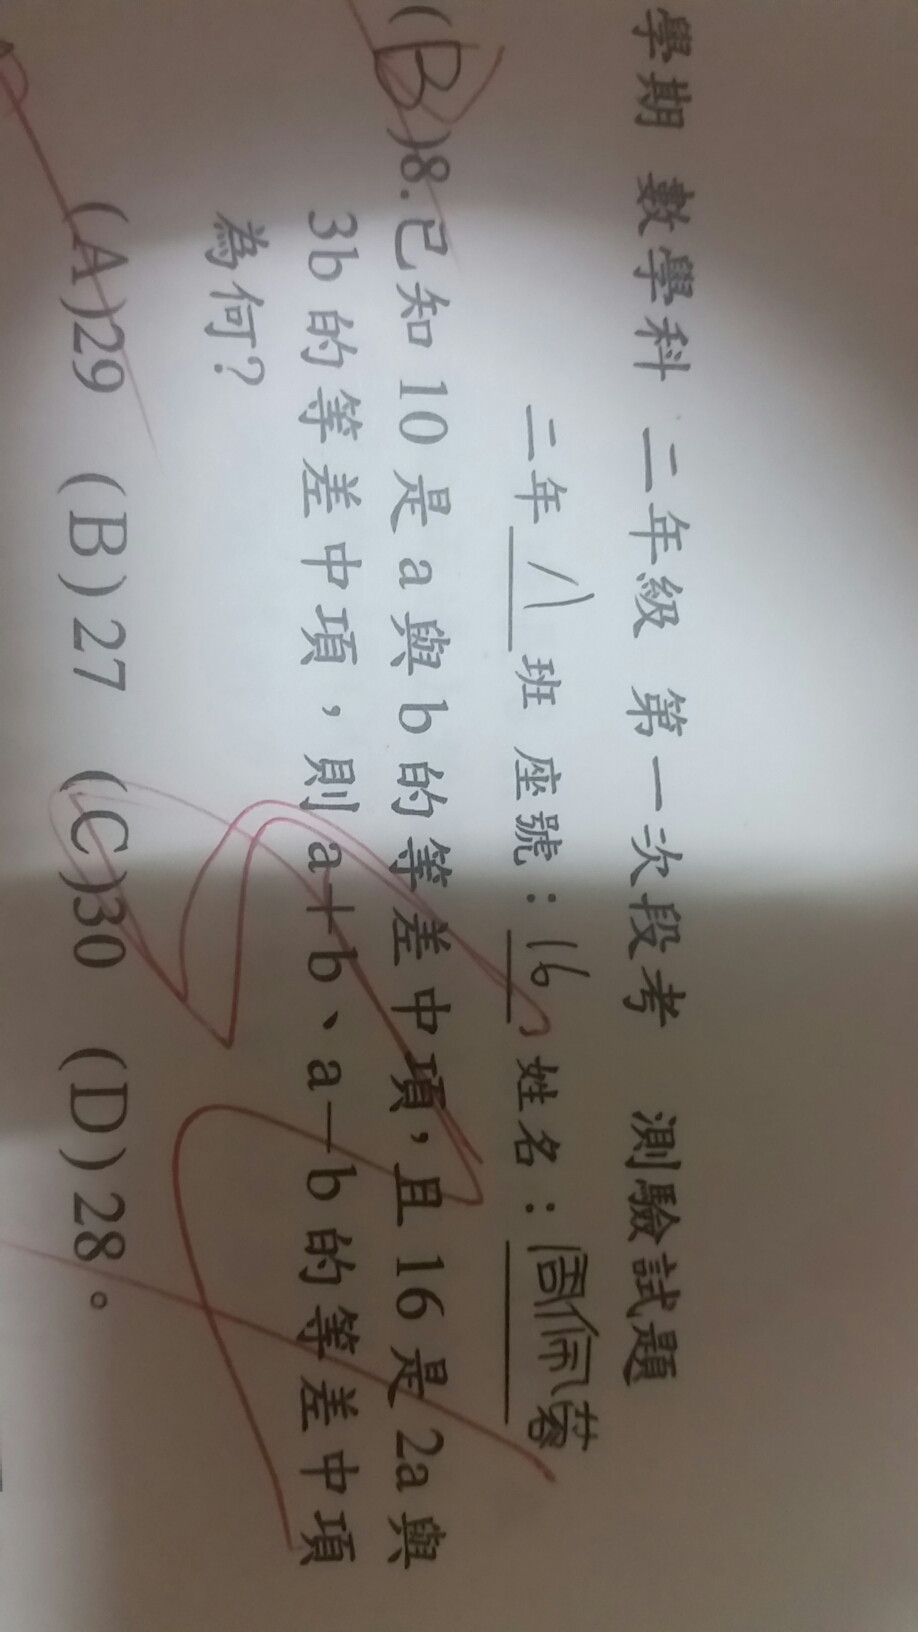 學期 數學科 二年級 第一次段考 測驗試題
二年 八 班 座號：16 姓名：周佩蓉
(B)8.已知10是a與b的等差中項，且16是2a與
3b的等差中項，則a+b、a－b的等差中項
為何？
(A)29 (B)27 (C)30 (D)28。